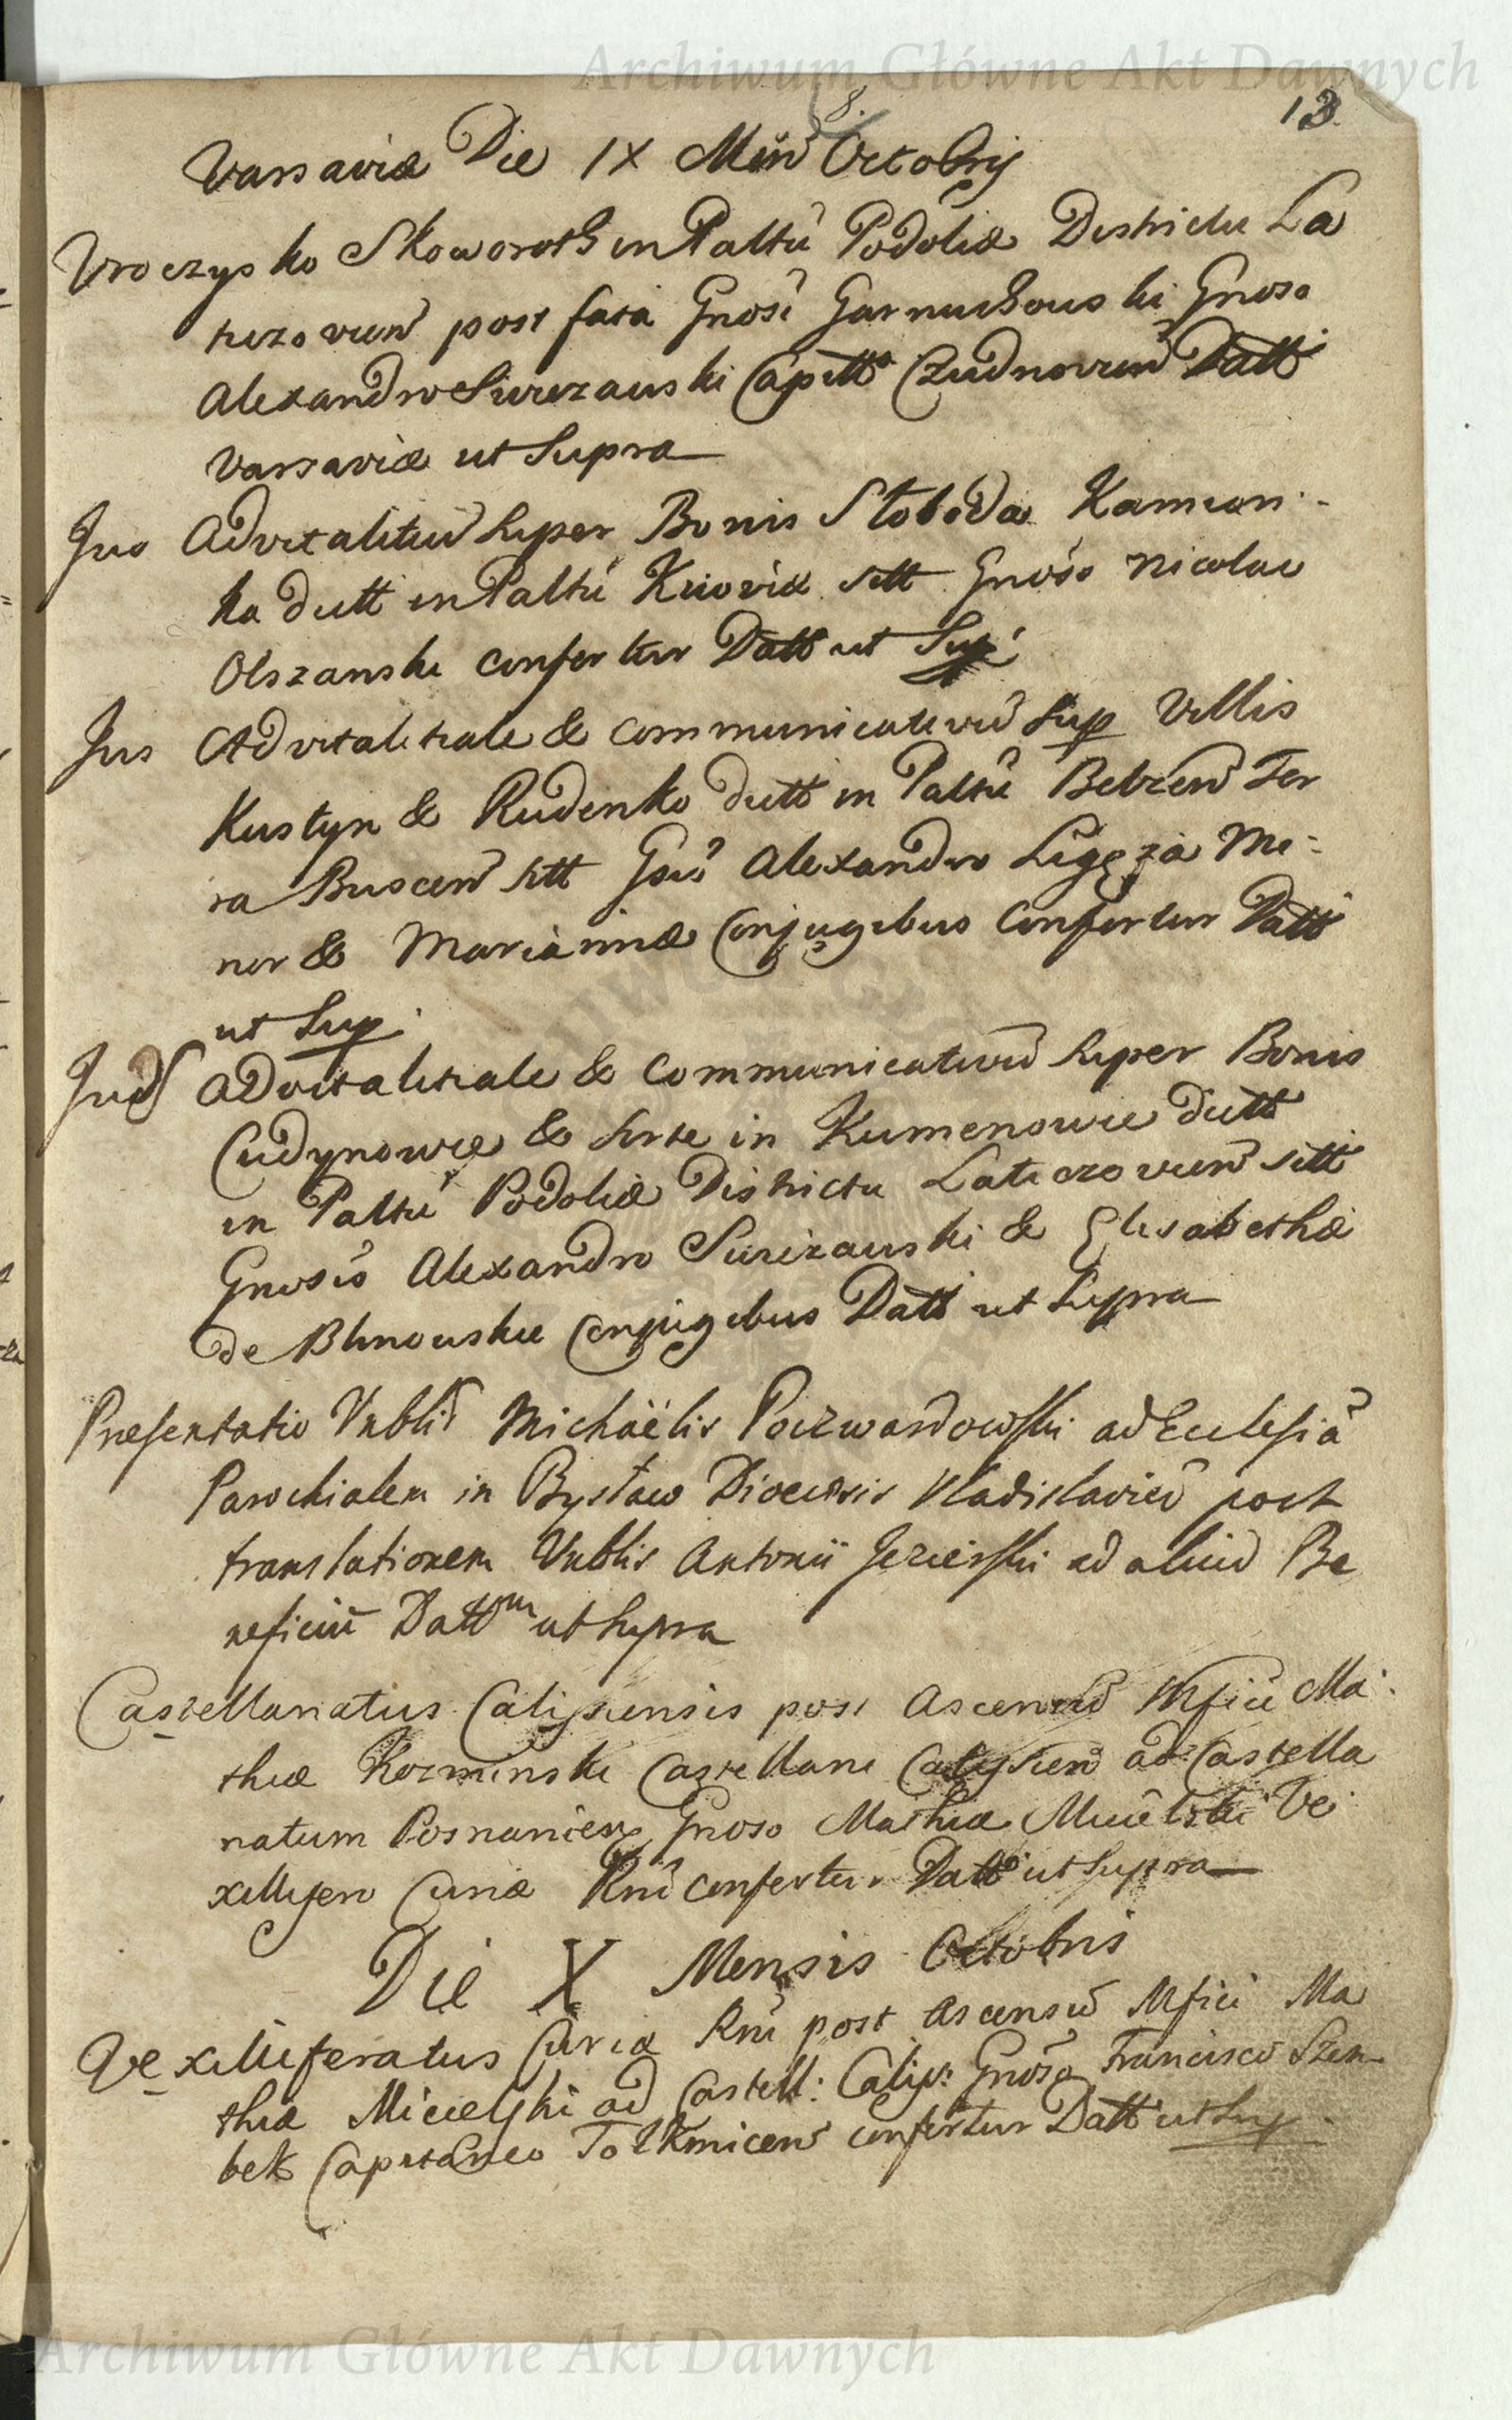 Archiwum Główne Akt Dawnych
8.
13.
Varsaviæ Die IX Men̄ Octobrij
Uroczysko Skoworoth in Paltū Podoliæ Districtu La
ticzovien̄ post fata Gnosi Garnuchouski Gnoso
Alexandro Swirzauski Capitt° Czudnovien̄ Datt
Varsaviæ ut Supra
Jus Advitalitiū super Bonis Słoboda Kamion-
ka dutt in Paltū Kiioviæ sitt Gnoso Nicolao
Olszanski confertur Datt ut Sup:
Jus Advitalitiale & communicativū sup Villis
Kustyn & Rudenko dutt in Paltū Belzen̄ Ter
ra Buscen̄ sitt Gsis Alexandro Ligęza Mi-
nor & Mariannæ Conjugibus Confertur Datt
ut Sup:
Jus Advitalitiale & Communicativū super Bonis
Cudynowce & sorte in Kumenowce dutt
in Paltū Podoliæ Districtu Laticzovien̄ sitt
Gnosis Alexandro Swirzauski & Elisabethæ
de Blinouskie Conjugibus Datt ut Supra
Præsentatio Vnblis Michaëlis Poczwardowski ad Ecclesiā
Parochialem in Bysław Diocesis Vladislavien̄ post
translationem Vnblis Antonii Jezierski ad aliud Be
neficiū Dattm ut supra
Castellanatus Calisiensis post Ascensū Mfici Ma-
thiæ Kozminski Castellani Calisien̄ ad Castella
natum Posnanien Gnoso Mathiæ Micielski Ve-
xillifero Curiæ Rni confertur Datt ut Supra
Die X Mensis Octobris
Vexilliferatus Curiæ Rni post Ascensū Mfici Ma
thiæ Micielski ad Castell: Calis: Gnoso Francisco Szem-
bek Capitaneo Tolkmicen̄ confertur Datt ut Sup.
Archiwum Główne Akt Dawnych